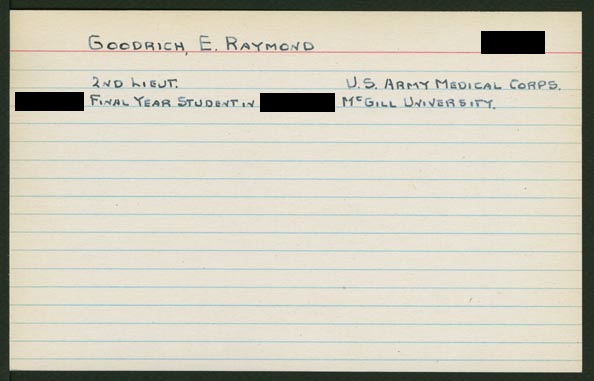 GOODRICH, E. RAYMOND
2ND LIEUT. U.S. ARMY MEDICAL CORPS.
FINAL YEAR STUDENT IN MCGILL UNIVERSITY.